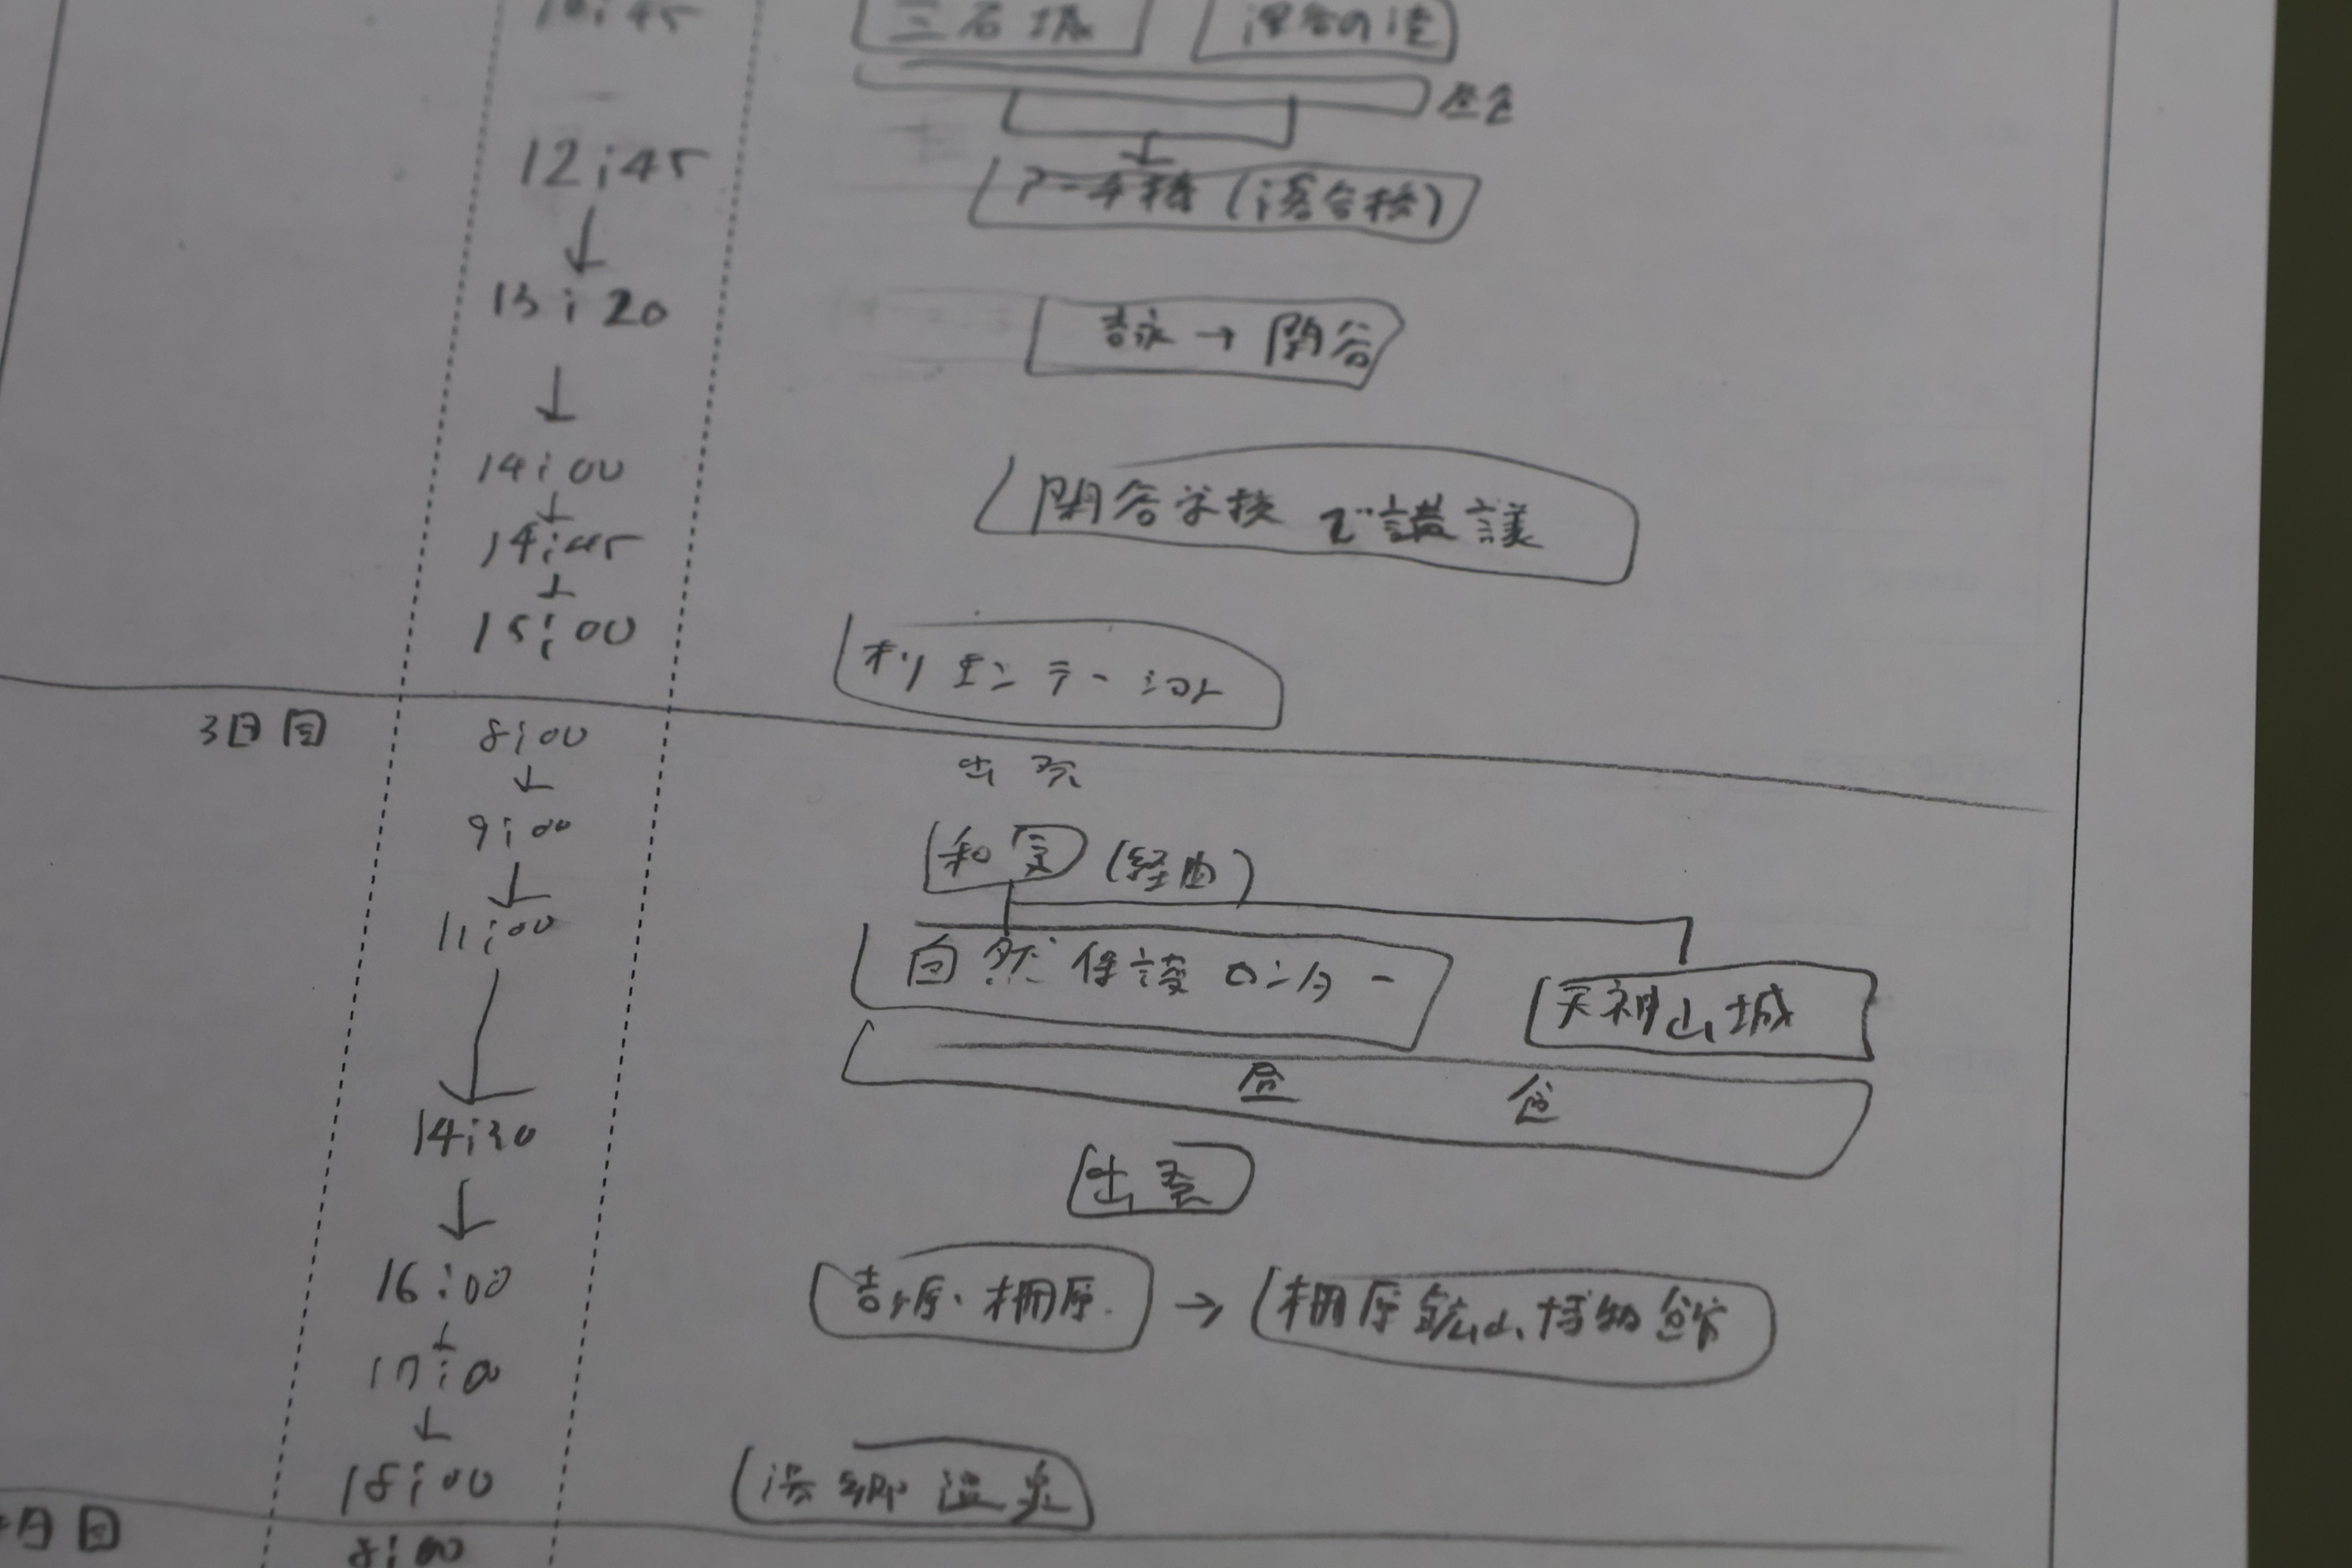 三石城
昼食
12:45
アーチ橋
13:20
吉永→閑谷
14:00
閑谷学校で講議
14:45
15:00
オリエンテーション
3日目 8:00 出発
9:00
和気(経由)
11:00
自然保護センター 天神山城
昼食
14:30
出発
16:00
吉ヶ原、柵原→柵原鉱山博物館
17:00
18:00
湯郷温泉
日目 8:00